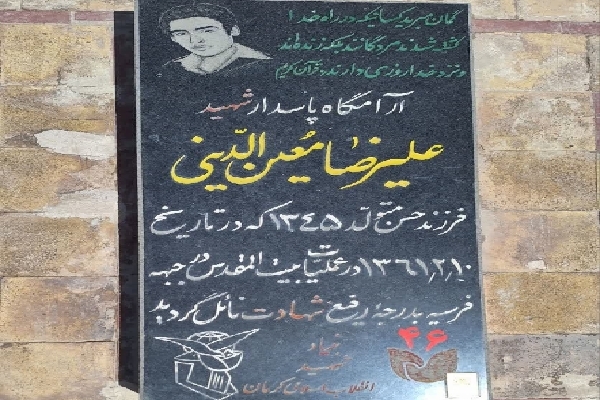 گمان مبرید کسانیکه در راه خدا
کشته شدند مردگانند بلکه زنده‌اند
و نزد خدا روزی دارند قرآن کریم
آرامگاه پاسدار شهید
علیرضا معین الدینی
فرزند حسن متولد ۱۳۴۵ که در تاریخ
۱۳۶۱/۲/۱۰ در عملیات بیت المقدس در جبهه
فرسیه بدرجهٔ رفیع شهادت نائل گردید
۴۶
بنیاد
شهید
انقلاب اسلامی کرمان